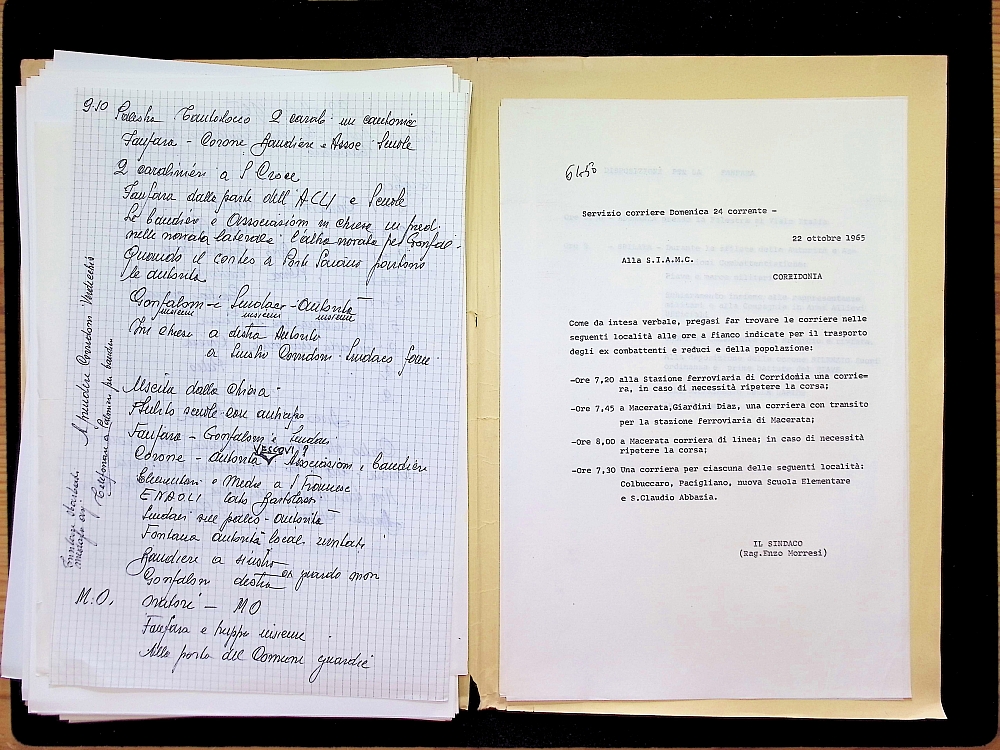 9.10 Palestra 2 carab. un
Fanfara - Corone Bandiere e Assoc. Scuole
2 carabinieri a S Croce
Fanfara dalla parte dell'ACLI e Scuole
Le bandiere e Associazioni in chiesa in
nella navata laterale l'altra navata per Gonfal.
Quando il corteo a partono
le autorità
Gonfaloni - i Sindaci - Autorità
insieme insieme insieme
In chiesa a destra Autorità
a Corridoni Sindaco
Uscita dalla Chiesa -
Subito scuole con
Fanfara - Gonfaloni e Sindaci
VESCOVI ?
Corone - autorità Associazioni, bandiere
Elementari e Medie a S Francesco
ENAOLI lato Bartolazzi
Sindaci sul palco - autorità
Fontana autorità locali invitati
Bandiere a sinistra
Gonfaloni destra
M.O. oratori - MO
Fanfara e truppa insieme
Alla porta del Comune guardie
6450
Servizio corriere Domenica 24 corrente -
22 ottobre 1965
Alla S.I.A.M.C.
CORRIDONIA
Come da intesa verbale, pregasi far trovare le corriere nelle
seguenti località alle ore a fianco indicate per il trasporto
degli ex combattenti e reduci e della popolazione:
-Ore 7,20 alla Stazione ferroviaria di Corridonia una corrie=
ra, in caso di necessità ripetere la corsa;
-Ore 7,45 a Macerata,Giardini Diaz, una corriera con transito
per la stazione ferroviaria di Macerata;
-Ore 8,00 a Macerata corriera di linea; in caso di necessità
ripetere la corsa;
-Ore 7,30 Una corriera per ciascuna delle seguenti località:
Colbuccaro, Pacigliano, nuova Scuola Elementare
e S.Claudio Abbazia.
IL SINDACO
(Rag.Enzo Morresi)